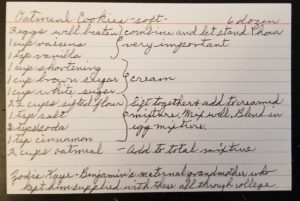 Oatmeal Cookies - soft - 6 dozen
3 eggs well beaten } combine and let stand 1 hour
1 cup raisins } very important
1 tsp vanilla
1 cup shortening
1 cup brown sugar } cream
1 cup white sugar
2½ cups sifted flour } Sift together & add to creamed
1 tsp salt mixture. Mix well. Blend in
2 tsp soda egg mixture.
1 tsp cinnamon
2 cups oatmeal - Add to total mixture
Kaye - Benjamin's maternal grandmother who
kept him supplied with these all through college